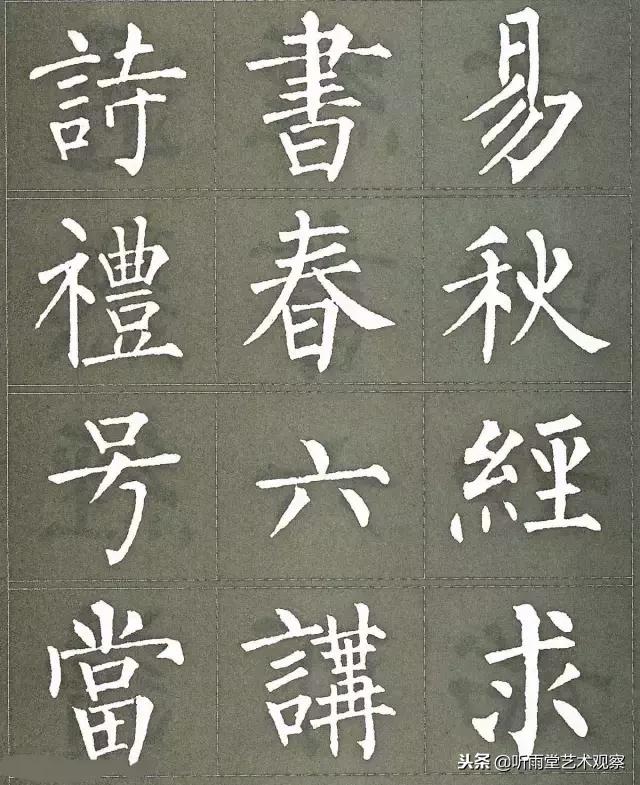 詩書易
禮春秋
号六經
當講求
头条 @听雨堂艺术观察